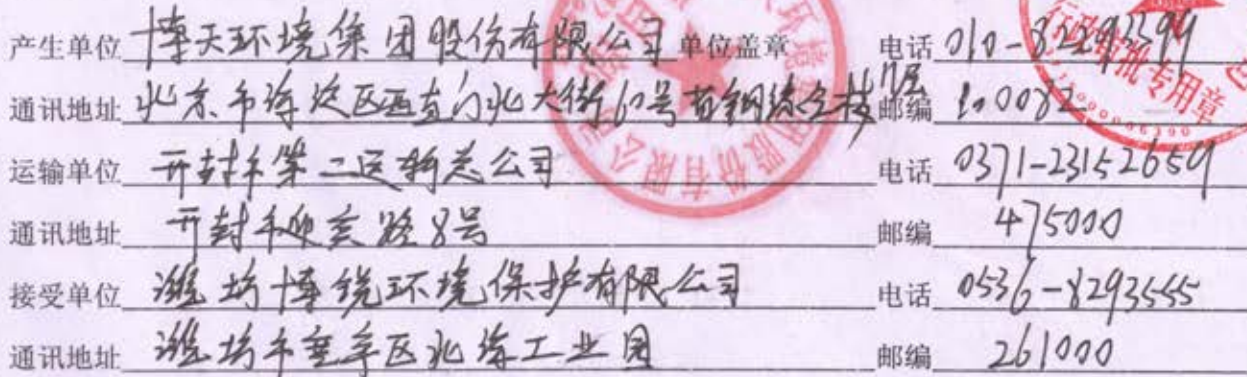 产生单位 博天环境集团股份有限公司 单位盖章 电话 010-82293399
通讯地址 北京市海淀区西直门北大街60号首钢综合楼11层 邮编 100082
运输单位 开封市第二运输总公司 电话 0371-23152659
通讯地址 开封市迎宾路8号 邮编 475000
接受单位 潍坊博锐环境保护有限公司 电话 0536-8293555
通讯地址 潍坊市奎文区北海工业园 邮编 261000
行政审批专用章
股份有限公司